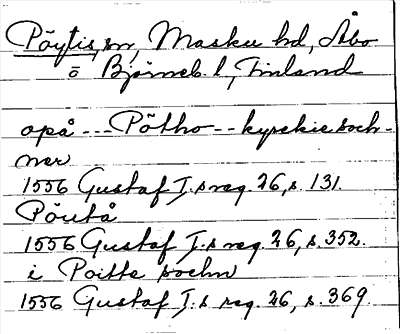 Pöytis, sn, Masku hd, Åbo
o Björneb. l, Finland
opå --- Pötho -- kyrckie soch-
ner
1556 Gustaf I.s reg. 26, s. 131.
Pöutå
1556 Gustaf I.s reg. 26, s. 352.
i Poitte sochn
1556 Gustaf I.s reg. 26, s. 369.